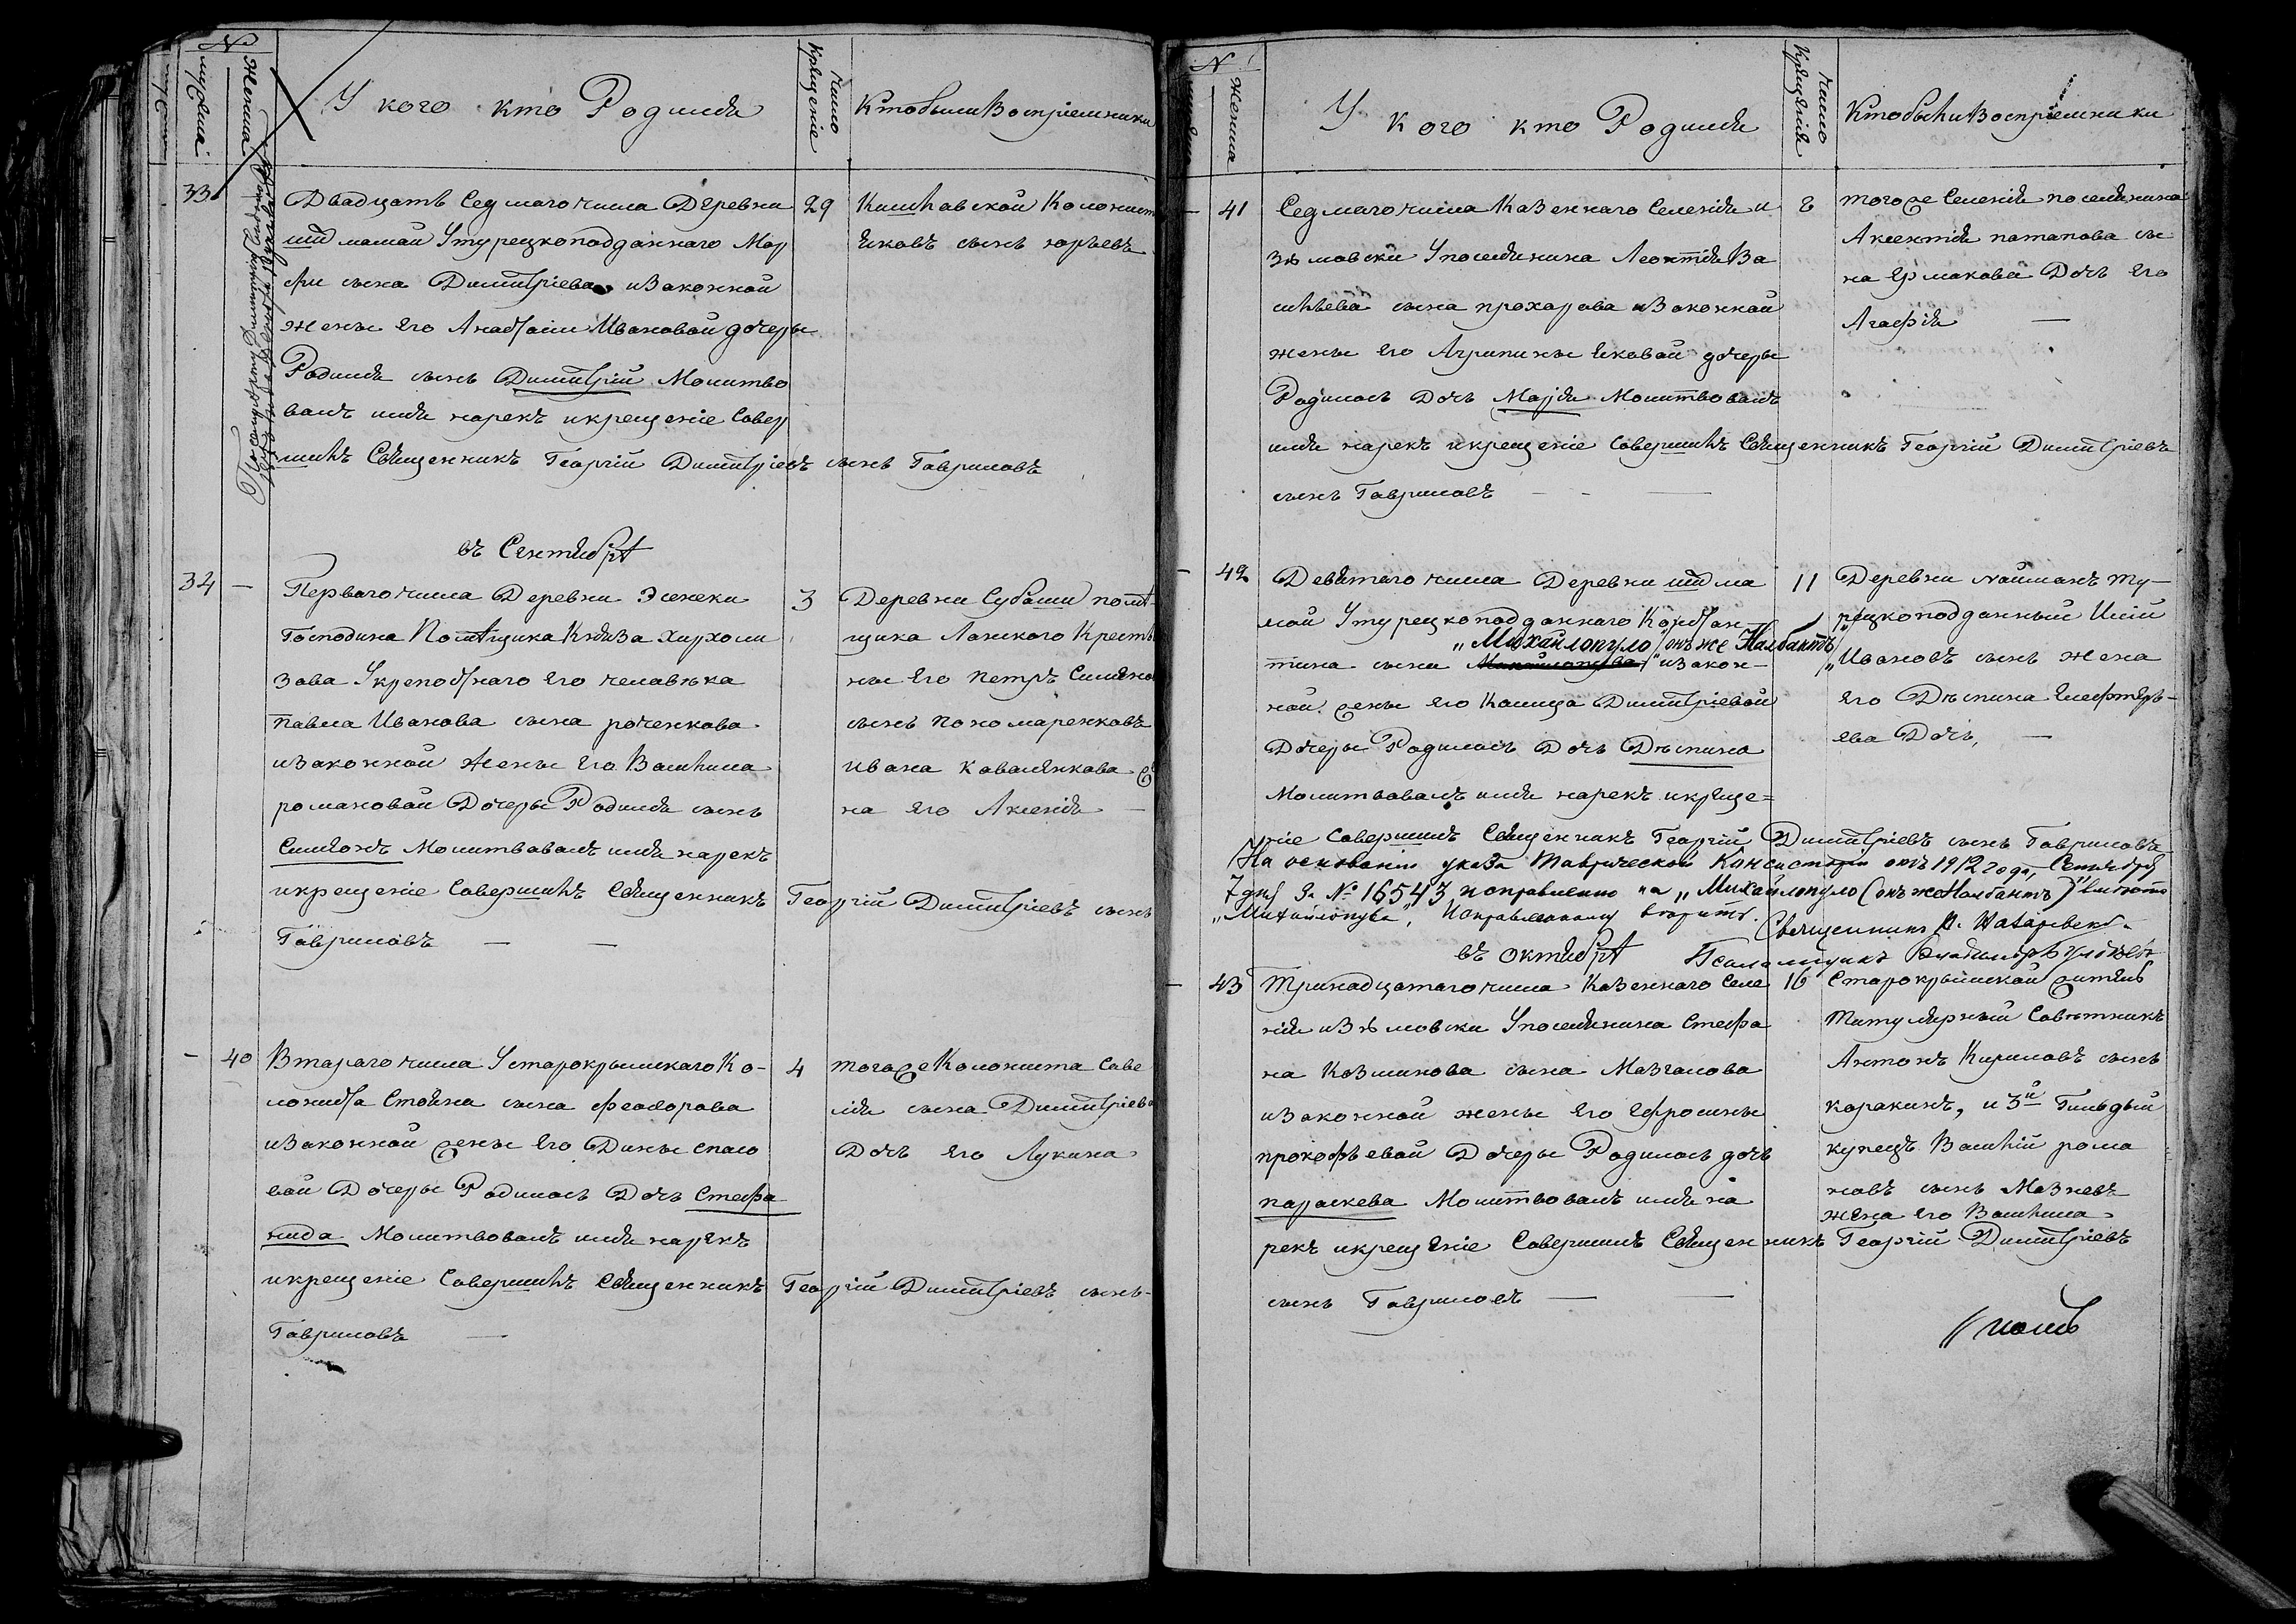 N
мужеска
Женска
У кого кто Родился
Число Крещенiе
Кто были Воспрiемники
33
Двадцать Седмаго числа Деревни
шид мамай У турецкоподданнаго Мар
фи сына Димитрiева изаконной
жены его Анастасiи Ивановой дочеры
Родился сынъ Димитрiй Молитво
валъ имя нарекъ и крещенiе Совер
шилъ Священникъ Георгiй Димитрiевъ сынъ Гавриловъ
29
Кишлавской Колонист
Яковъ сынъ юрьевъ
въ Сентябрѣ
34 —
Перваго числа Деревни Эсенеки
Господина Помѣщика Князя Хирхоли
зова У крепостнаго Его человѣка
павла Иванова сына роченкова
изаконной жены Его Василиса
романовой Дочеры Родился сынъ
Симионъ Молитвовалъ имя нарекъ
и крещенiе Совершилъ Священникъ Георгiй Димитрiевъ сынъ
Гавриловъ — —
3
Деревни Субаши помѣ-
щика Ланского Кресть
ны Его Петръ Симяно
сынъ Пономаренковъ
ивана Ковалѣнкова же
на Его Аксенiя —
— 40
Втораго числа У старокрымскаго Ко-
лониста Стояна сына феодорова
изаконной жены Его Дины спасо
вой Дочеры Родилась Дочь Стефа
нида Молитвовалъ имя нарекъ
и крещенiе Совершилъ Священникъ Георгiй Димитрiевъ сынъ-
Гавриловъ —
4
тогоже Колониста Саве
лiя сына Димитрiева
Дочь Его Лукина
N
Женска
У кого кто Родился
Число Крещенiя
Кто были Воспрiемники
— 41
Седмаго числа Казеннаго Селенiя и
зюмовски У поселянина Леонтiя Ва
сильева сына прохарова изаконной
жены Его Агрипины Яковой дочеры
Родилась Дочь Марiя Молитвовалъ
имя нарекъ и крещенiе Совершилъ Священникъ Георгiй Димитрiевъ
сынъ Гавриловъ — - —
8
тогоже Селенiя поселянина
Аксентiя патапова сы
на Ермакова Дочь Его
Агафiя —
— 42
Девятаго числа Деревни шид ма
май У турецкоподданнаго Констан-
„Михайлопуло /онъ же Налбантъ/
тина сына Михайлопулова изакон-
ной жены Его Калица Димитрiевой
Дочеры Родилась Дочь Дѣспина
Молитвовалъ имя нарекъ и креще=
нiе Совершилъ Священникъ Георгiй Димитрiевъ сынъ Гавриловъ
11
Деревни найманъ ту-
рецкоподданный Илiй
Ивановъ сынъ жена
Его Дѣспина Елефтерь-
ева Дочь, —
На основанiи указа Таврической Консисторiи отъ 1912 года, Сентября
7 дня за № 16543 исправлено на „Михайлопуло (онъ же Налбантъ)" вместо
„Михайлопула", Исправленному верить.
Священникъ
Псаломщикъ
въ октябрѣ
— 43
Тринадцатаго числа Казеннаго Селе
нiя изюмовски У поселянина Стефа
на Козминова сына Мазгалова
изаконной жены Его Ефросины
прокофьевой Дочеры Родилась дочь
параскева Молитвовалъ имя на
рекъ и крещенiе Совершилъ Священникъ Георгiй Димитрiевъ
сынъ Гавриловъ — —
16
Старокрымской житель
Титулярный Совѣтникъ
Антонъ Кириловъ сынъ
каракинъ, и 3й Гильдый
купецъ Василiй рома
новъ сынъ Мазневъ
жена Его Василиса